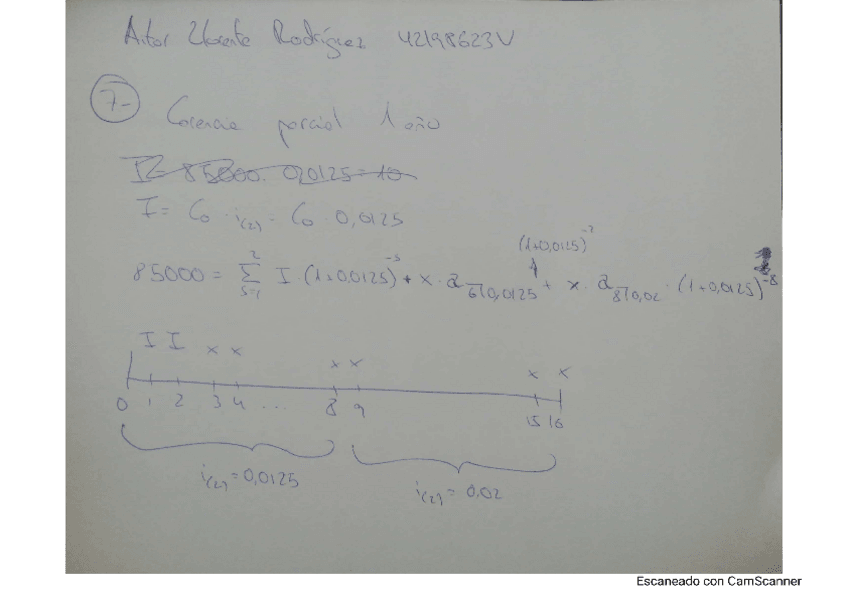 Aitor Llorente Rodríguez 42198623V
7-
Carencia parcial 1 año
I = 85000 · 0,0125 = 10
I = C₀ · i(2) = C₀ · 0,0125
(1+0,0125)⁻²
85000 = Σ²ₛ₌₁ I · (1+0,0125)⁻ˢ + x · a6̅|0,0125 + x · a8̅|0,02 · (1+0,0125)⁻⁸
I I x x x x x x
0 1 2 3 4 ... 8 9 15 16
i(2) = 0,0125
i(2) = 0,02
Escaneado con CamScanner